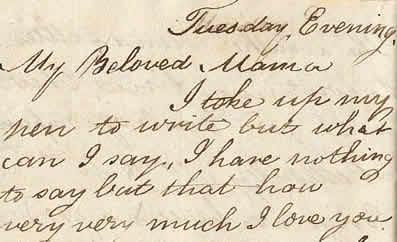 Tuesday, Evening.
My Beloved Mama
I take up my
pen to write but what
can I say, I have nothing
to say but that how
very very much I love you.